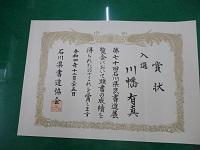 賞状
入選
川幡有真
第七十四回石川県児童書道展
覧会において頭書の成績を
得られたのでこれを賞します
令和四年十二月二十五日
石川県書道協会